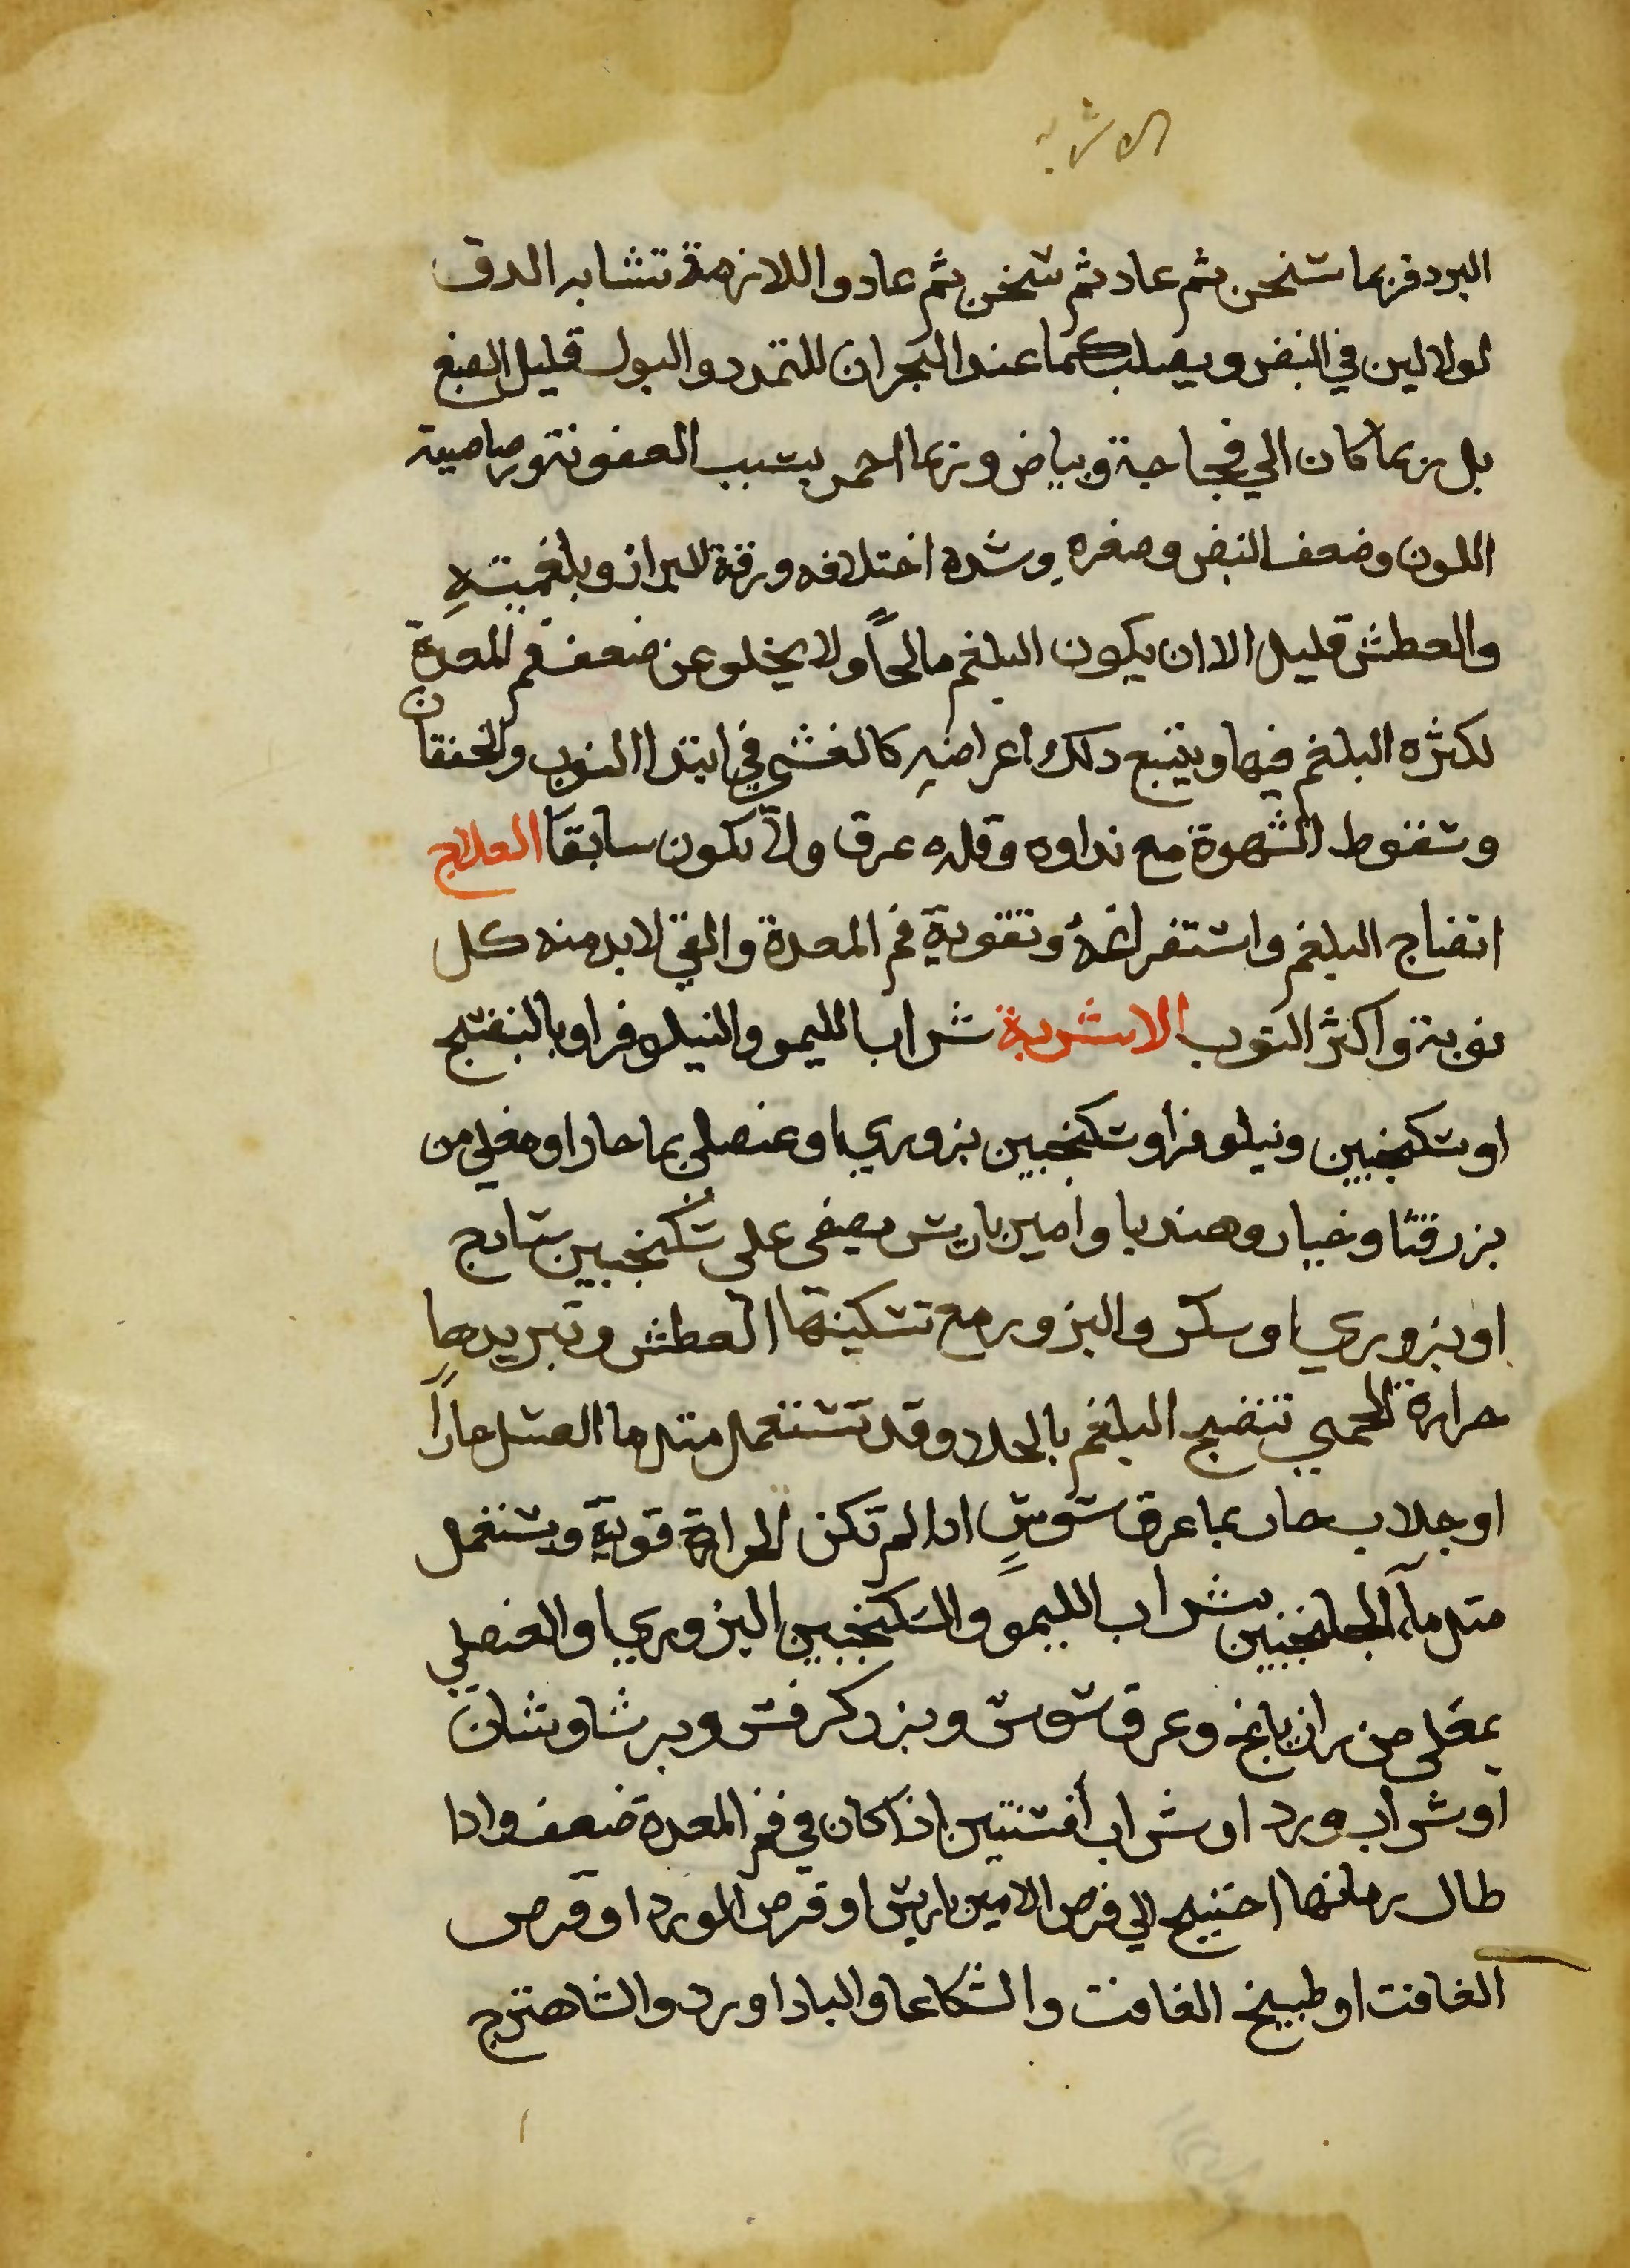 الاشربة
البرد فربما سخن ثم عاد ثم سخن ثم عاد واللازمة تشابه الدق
لولا لين في النبض ويصلب كما عند البحران للتمدد والبول قليل الصبغ
بل ربما كان الي فجاجة وبياض وربما احمر بسبب العفونة ورصاصية
اللون وضعف النبض وصغره وشدة اختلافه ورقة البراز وبلغميته
والعطش قليل الا ان يكون البلغم مالحاً ولا يخلو عن ضعف فم المعدة
لكثره البلغم فيها ويتبع دلك اعراضه كالغشي في ابتدا النوب والخفقان
وسقوط الشهوة مع نداوه وقله عرق ولا يكون سابقا العلاج
انضاج البلغم واستفراغه وتقوية فم المعدة والقي لابد منه كل
نوبة و اكثر النوب الاشربة شراب الليمو والنيلوفر او بالبنفسج
او سكنجبين ونيلوفر او سكنجبين بزوري او عنصلي بما حار او مغلي من
بزر قثا وخيار وهندبا وامير باريس مصفى على سكنجبين سادج
او بزوري او سكر والبزور مع تسكينها العطش وتبريدها
حرارة الحمي تنضج البلغم بالجلا وقد تستعمل متل ما العسل حاراً
او جلاب حار بما عرق سوس ادا لم تكن الحرارة قوية ويستعمل
متل ماء الجلنجبين بشراب الليمو والسكنجبين البزوري او العنصلي
بمغلي من رازيانج وعرق سوس وبزر كرفس وبرشاوشان
او شراب ورد او شراب أفسنتين اذا كان في فم المعدة ضعف وادا
طال زمانها احتيج الي قرص الاميرباريس او قرص الورد او قرص
الغافت او طبيخ الغافت والشكاعا والباداورد والشاهترج